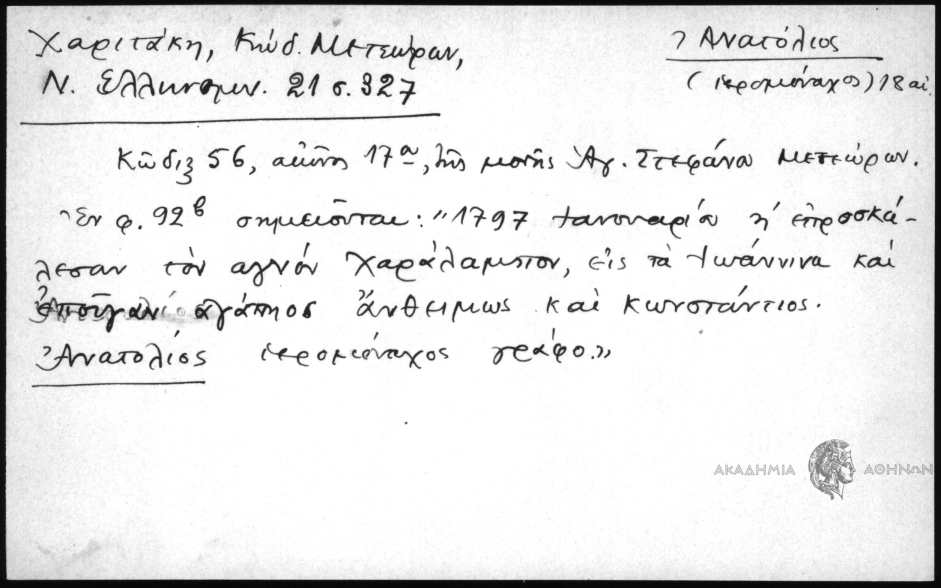 Χαριτάκη, Κώδ. Μετεώρων,
Ν. Ελληνομν. 21 σ. 327
Ἀνατόλιος
(ἱερομόναχος) 18 αἰ.
Κῶδιξ 56, αἰῶνος 17ᵒˢ, τῆς μονῆς Ἁγ. Στεφάνου Μετεώρων.
Ἐν φ. 92β σημειοῦται: "1797 Ιανουαρίου ἡ ἐπροσκά-
λεσαν τὸν αγνόν Χαράλαμπον, εἰς τὰ Ἰωάννινα καὶ
ἐποῦγαν ἀγάπιος ἄνθειμως καὶ κωνστάντιος.
Ἀνατολίος ἱερομόναχος γράφο."
ΑΚΑΔΗΜΙΑ ΑΘΗΝΩΝ